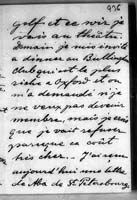 976
golf et ce soir je
vais au théâtre.
Demain je suis invité
a dinner au Bullingdon
club qui est le plus
riche a Oxford et on
m'a demandé si je
ne veux pas devenir
membre, mais je crois
que je vais refuser
parceque ca coût
très cher. J'ai reçu
aujourd'hui une lettre
de Aba de St. Petersbourg